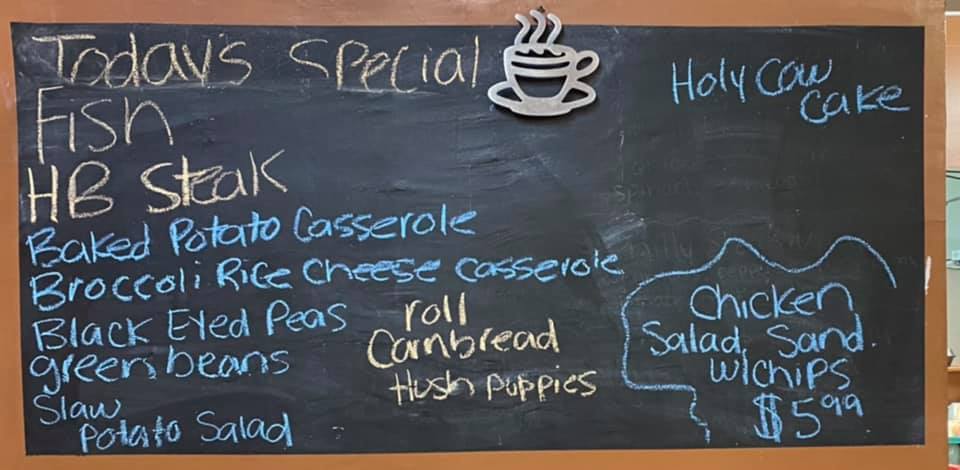 Today's Special
Fish
HB Steak
Baked Potato Casserole
Broccoli Rice Cheese casserole
Black Eyed Peas
green beans
Slaw
Potato Salad
roll
Cornbread
Hush puppies
Holy Cow
Cake
Chicken
Salad Sand.
w/chips
$5.99